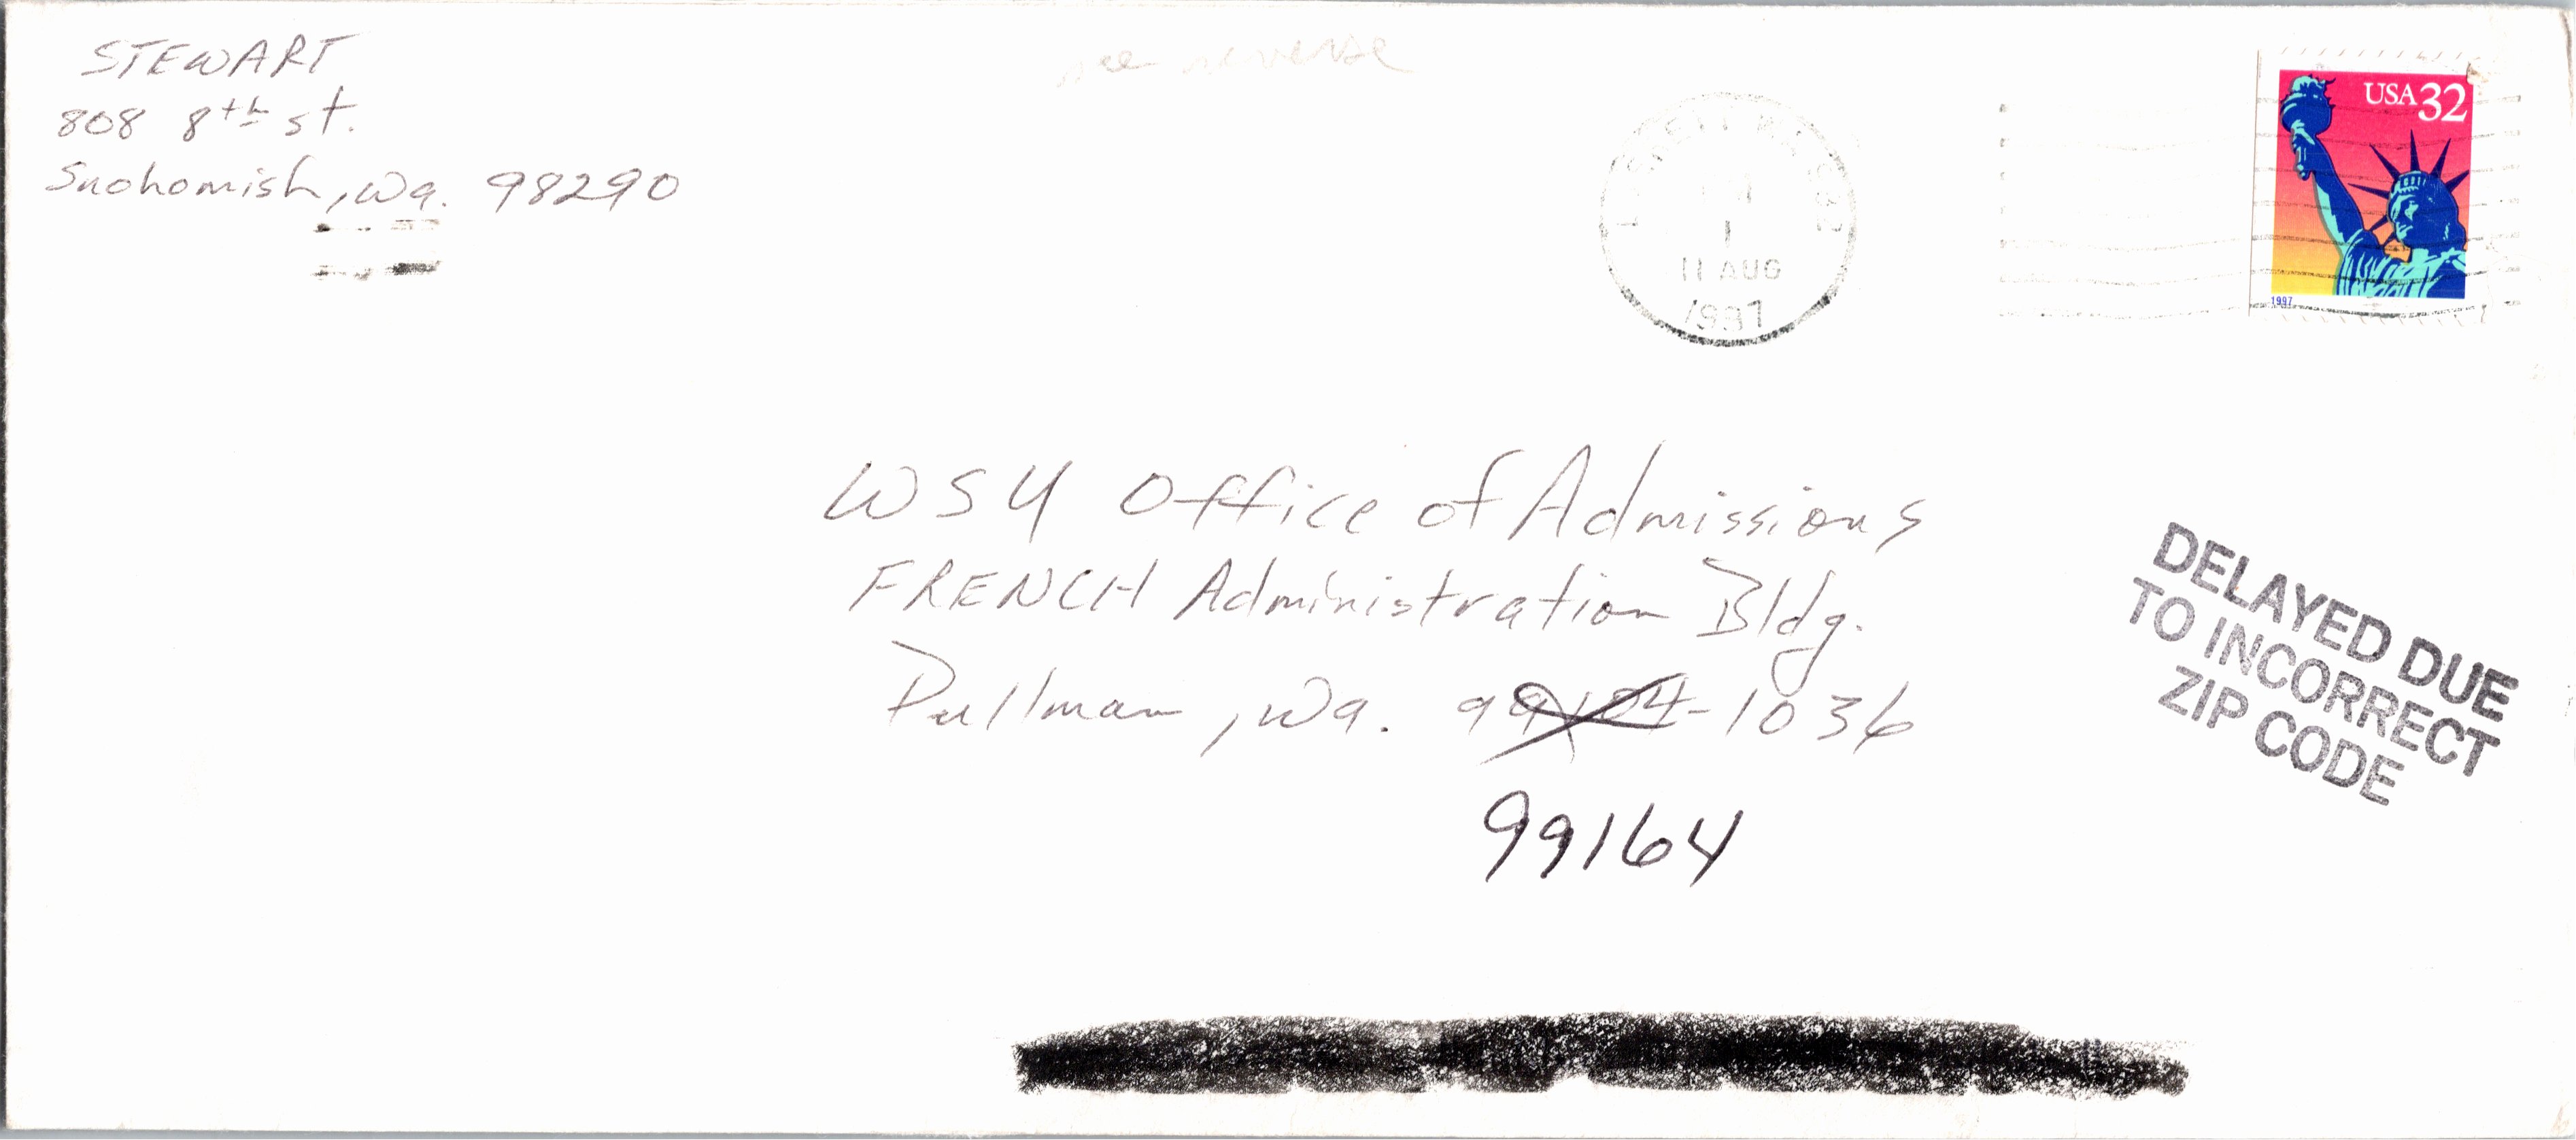 STEWART
808 8th st.
Snohomish, Wa. 98290
see reverse
11 AUG
1997
USA 32
1997
WSU Office of Admissions
FRENCH Administration Bldg.
Pullman, Wa. 99104-1036
99164
DELAYED DUE
TO INCORRECT
ZIP CODE